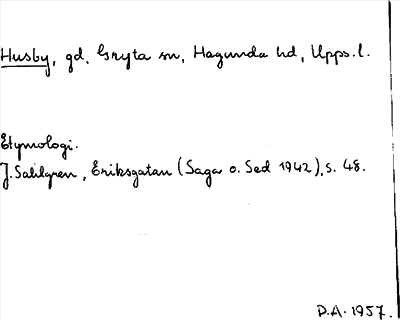 Husby, gd, Gryta sn, Hagunda hd, Upps. l.
Etymologi.
J. Sahlgren, Eriksgatan (Saga o. Sed 1942), s. 48.
D.A. 1957.